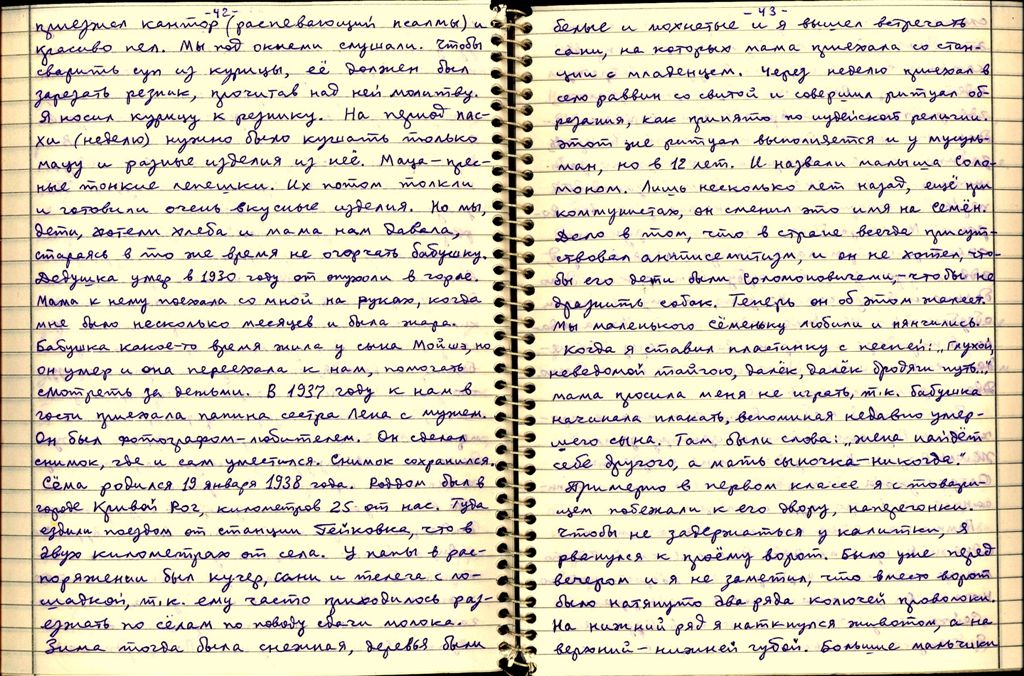 -42-
приезжал кантор (распевающий псалмы) и
красиво пел. Мы под окнами слушали. Чтобы
сварить суп из курицы, её должен был
зарезать резник, прочитав над ней молитву.
Я носил курицу к резнику. На период пас-
хи (неделю) нужно было кушать только
мацу и разные изделия из неё. Маца – прес-
ные тонкие лепешки. Их потом толкли
и готовили очень вкусные изделия. Но мы,
дети, хотели хлеба и мама нам давала,
стараясь в то же время не огорчать бабушку.
Дедушка умер в 1930 году от опухоли в горле.
Мама к нему поехала со мной на руках, когда
мне было несколько месяцев и была жара.
Бабушка какое-то время жила у сына Мойшэ, но
он умер и она переехала к нам, помогать
смотреть за детьми. В 1937 году к нам в
гости приехала папина сестра Лена с мужем.
Он был фотографом-любителем. Он сделал
снимок, где и сам уместился. Снимок сохранился.
Сёма родился 19 января 1938 года. Роддом был в
городе Кривой Рог, километров 25 от нас. Туда
ездили поездом от станции Гейковка, что в
двух километрах от села. У папы в рас-
поряжении был кучер, сани и телега с ло-
шадкой, т.к. ему часто приходилось раз-
езжать по сёлам по поводу сдачи молока.
Зима тогда была снежная, деревья были
-43-
белые и мохнатые и я вышел встречать
сани, на которых мама приехала со стан-
ции с младенцем. Через неделю приехал в
село раввин со свитой и совершил ритуал об-
резания, как принято по иудейской религии.
Этот же ритуал выполняется и у мусуль-
ман, но в 12 лет. И назвали малыша Соло-
моном. Лишь несколько лет назад, ещё при
коммунистах, он сменил это имя на Семён.
Дело в том, что в стране всегда присут-
ствовал антисемитизм, и он не хотел, что-
бы его дети были Соломоновичами, – чтобы не
дразнить собак. Теперь он об этом жалеет.
Мы маленького Сёменьку любили и нянчились.
Когда я ставил пластинку с песней: „Глухой,
неведомой тайгою, далёк, далёк бродяги путь..."
мама просила меня не играть, т.к. бабушка
начинала плакать, вспоминая недавно умер-
шего сына. Там были слова: „жена найдёт
себе другого, а мать сыночка – никогда."
Примерно в первом классе я с товари-
щем побежали к его двору, наперегонки.
Чтобы не задержаться у калитки, я
рванулся к проёму ворот. Было уже перед
вечером и я не заметил, что вместо ворот
было натянуто два ряда колючей проволоки.
На нижний ряд я наткнулся животом, а на
верхний – нижней губой. Большие мальчики